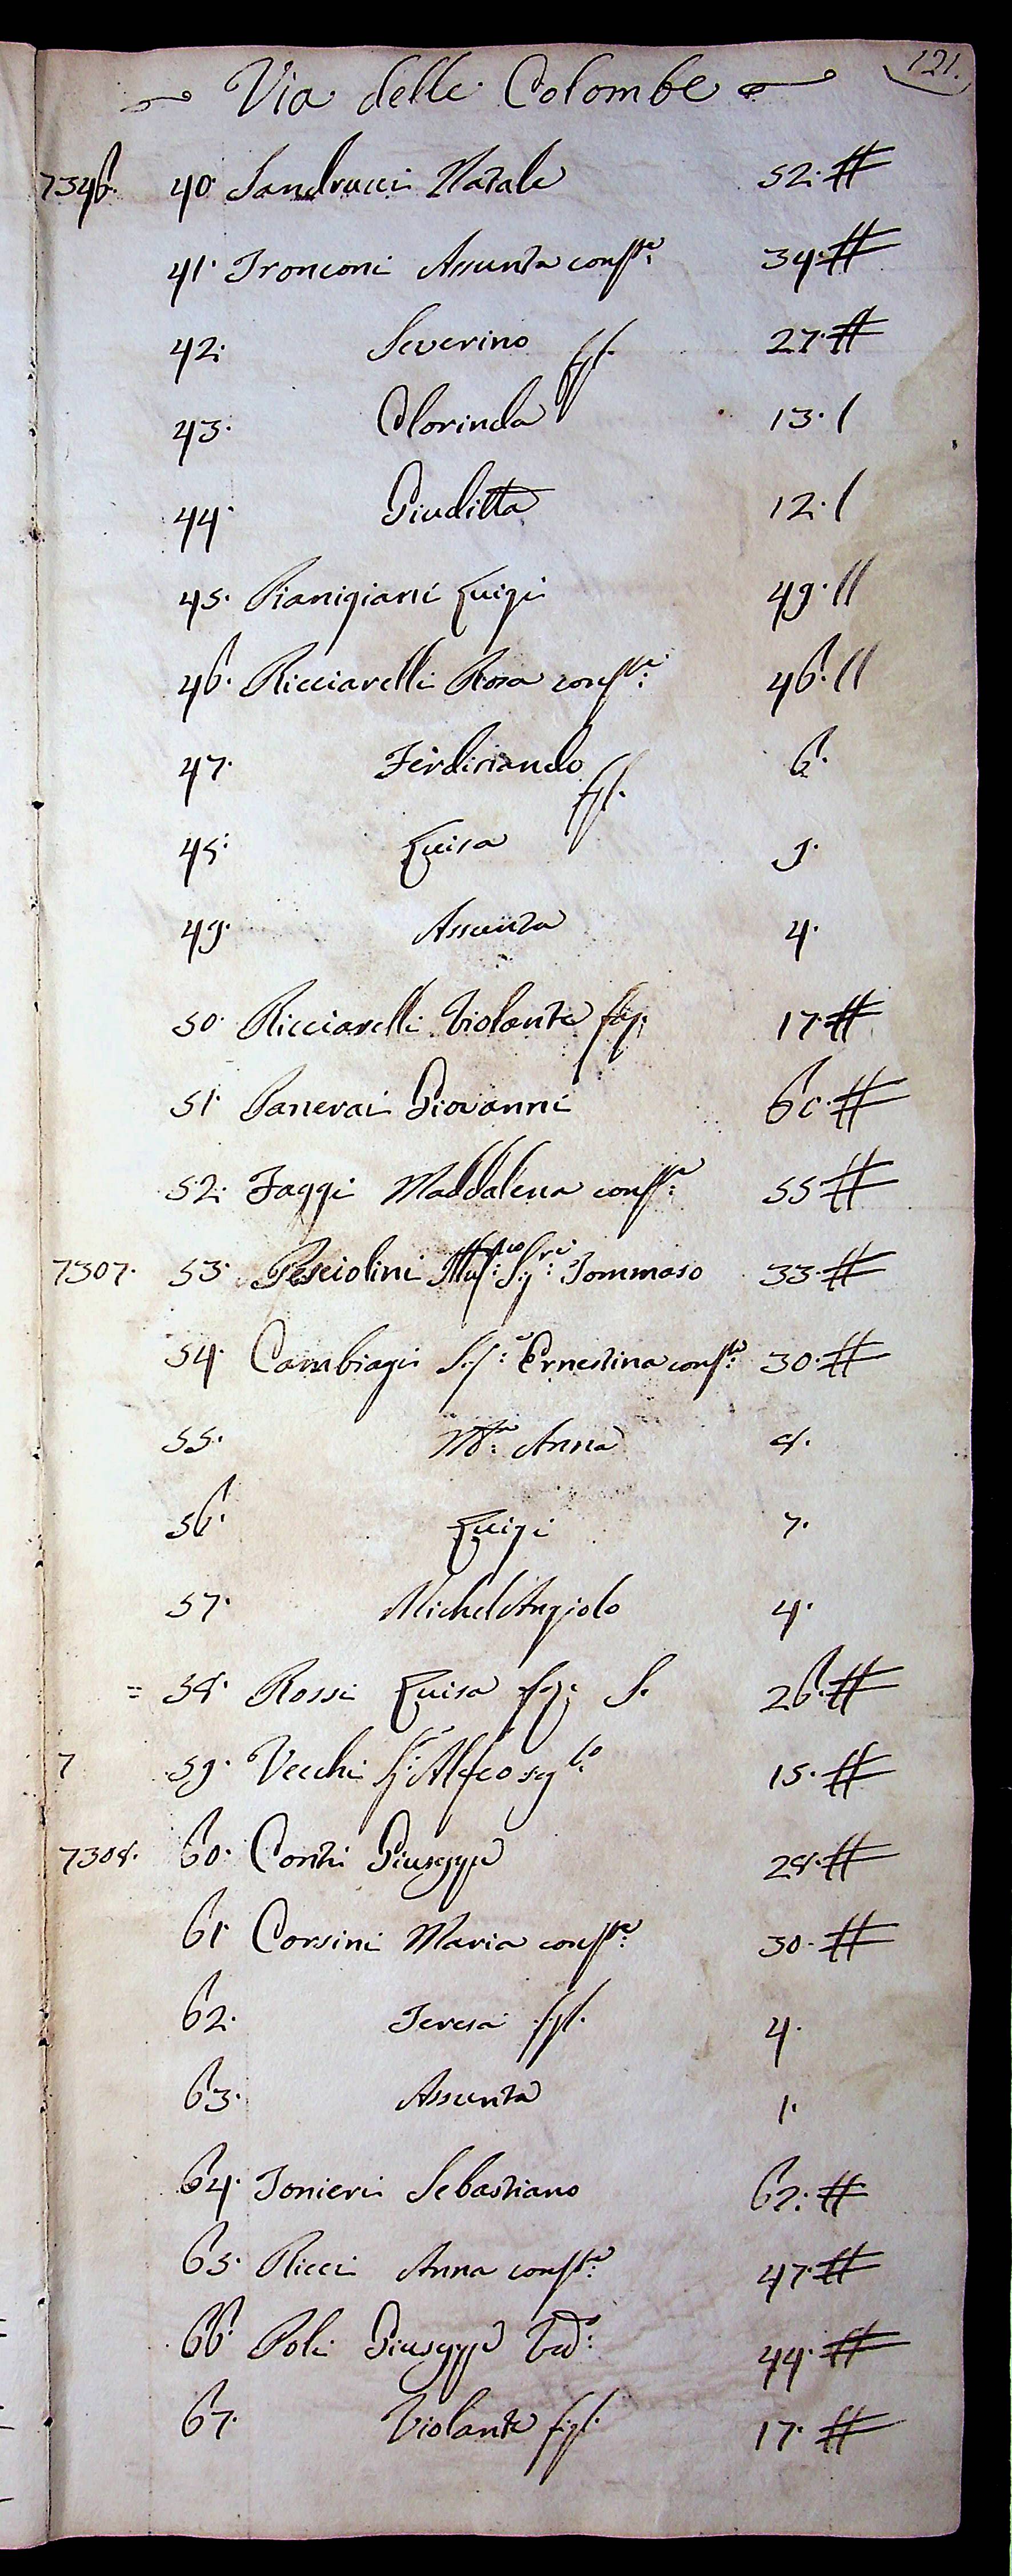 121.
Via delle Colombe
7346. 40. Sandrucci Natale 52. #
41. Tronconi Assunta conste. 34. #
42. Severino figl. 27. #
43. Clorinda 13. /
44. Giuditta 12. /
45. Pianigiani Luigi 49. //
46. Ricciarelli Rosa conste. 46. //
47. Ferdinando figl. 6.
48. Luisa 9.
49. Assunta 4.
50. Ricciarelli Violante 17. #
51. Panerai Giovanni 60. #
52. Faggi Maddalena conste. 55 #
7307. 53. Pesciolini Illmo. Sigre. Tommaso 33. #
54. Cambiagi Sigа. Ernestina conste. 30. #
55. Ma. Anna 8.
56. Luigi 7.
57. MichelAngiolo 4.
= 58. Rossi Luisa S. 26. #
7 59. Vecchi Alfeo 15. #
7308. 60. Conti Giuseppe 28. #
61. Corsini Maria conste. 30. #
62. Teresa figl. 4.
63. Assunta 1.
64. Tonieri Sebastiano 62. #
65. Ricci Anna conste. 47. #
66. Poli Giuseppe Vedo. 44. #
67. Violante figl. 17. #